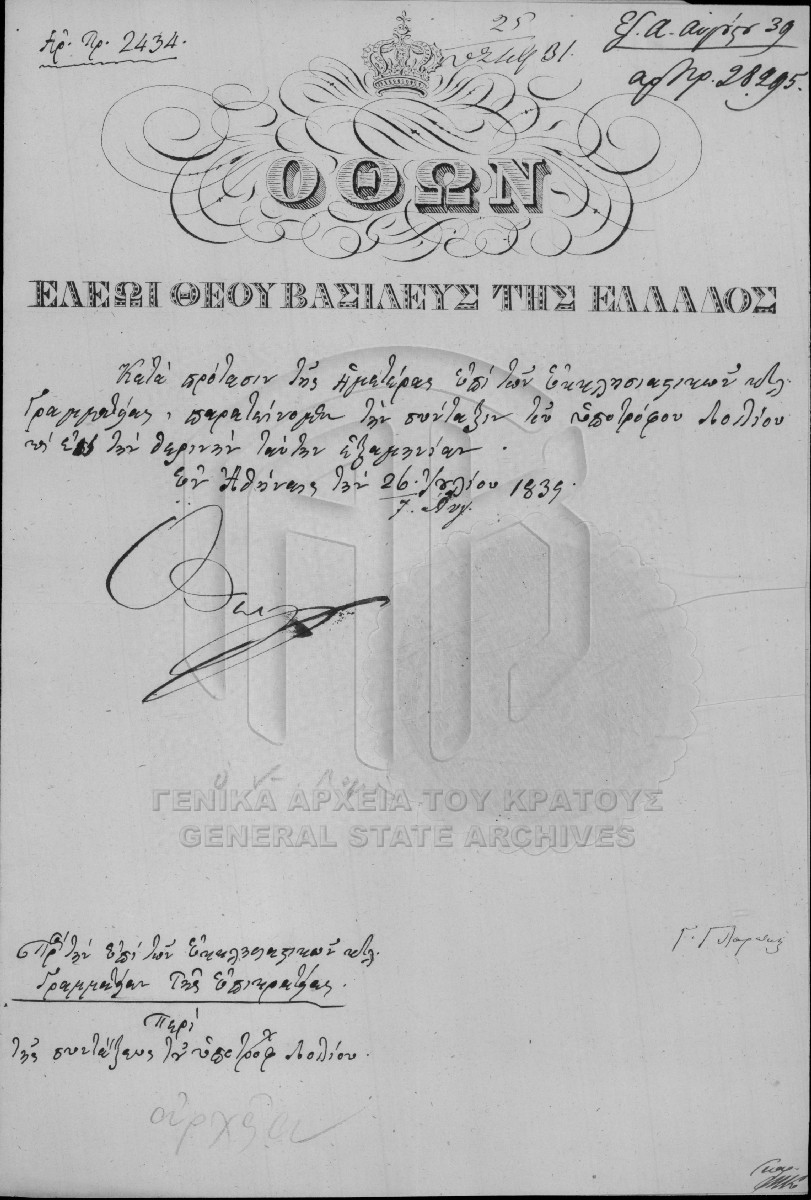 Ἀρ. Πρ. 2434.
25
31.
Ἐξ. Α. Αυγούστ 39
αρ Πρ. 28295.
ΟΘΩΝ
ΕΛΕΩι ΘΕΟΥ ΒΑΣΙΛΕΥΣ ΤΗΣ ΕΛΛΑΔΟΣ
Κατὰ πρότασιν τῆς Ἡμετέρας ἐπὶ τῶν Ἐκκλησιαστικῶν κτλ.
Γραμματείας, παρατείνομεν τὴν σύνταξιν τοῦ ὑποτρόφου
τὴν θερινὴν ταύτην ἑξαμηνίαν.
Ἐν Ἀθήναις τὴν 26. Ἰουλίου 1839.
7. Αυγ.
Ὄθων
ΓΕΝΙΚΑ ΑΡΧΕΙΑ ΤΟΥ ΚΡΑΤΟΥΣ
GENERAL STATE ARCHIVES
Πρὸς τὴν ἐπὶ τῶν Ἐκκλησιαστικῶν κτλ.
Γραμματείαν τῆς Ἐπικρατείας.
Περὶ
τῆς συντάξεως τοῦ ὑποτρόφ